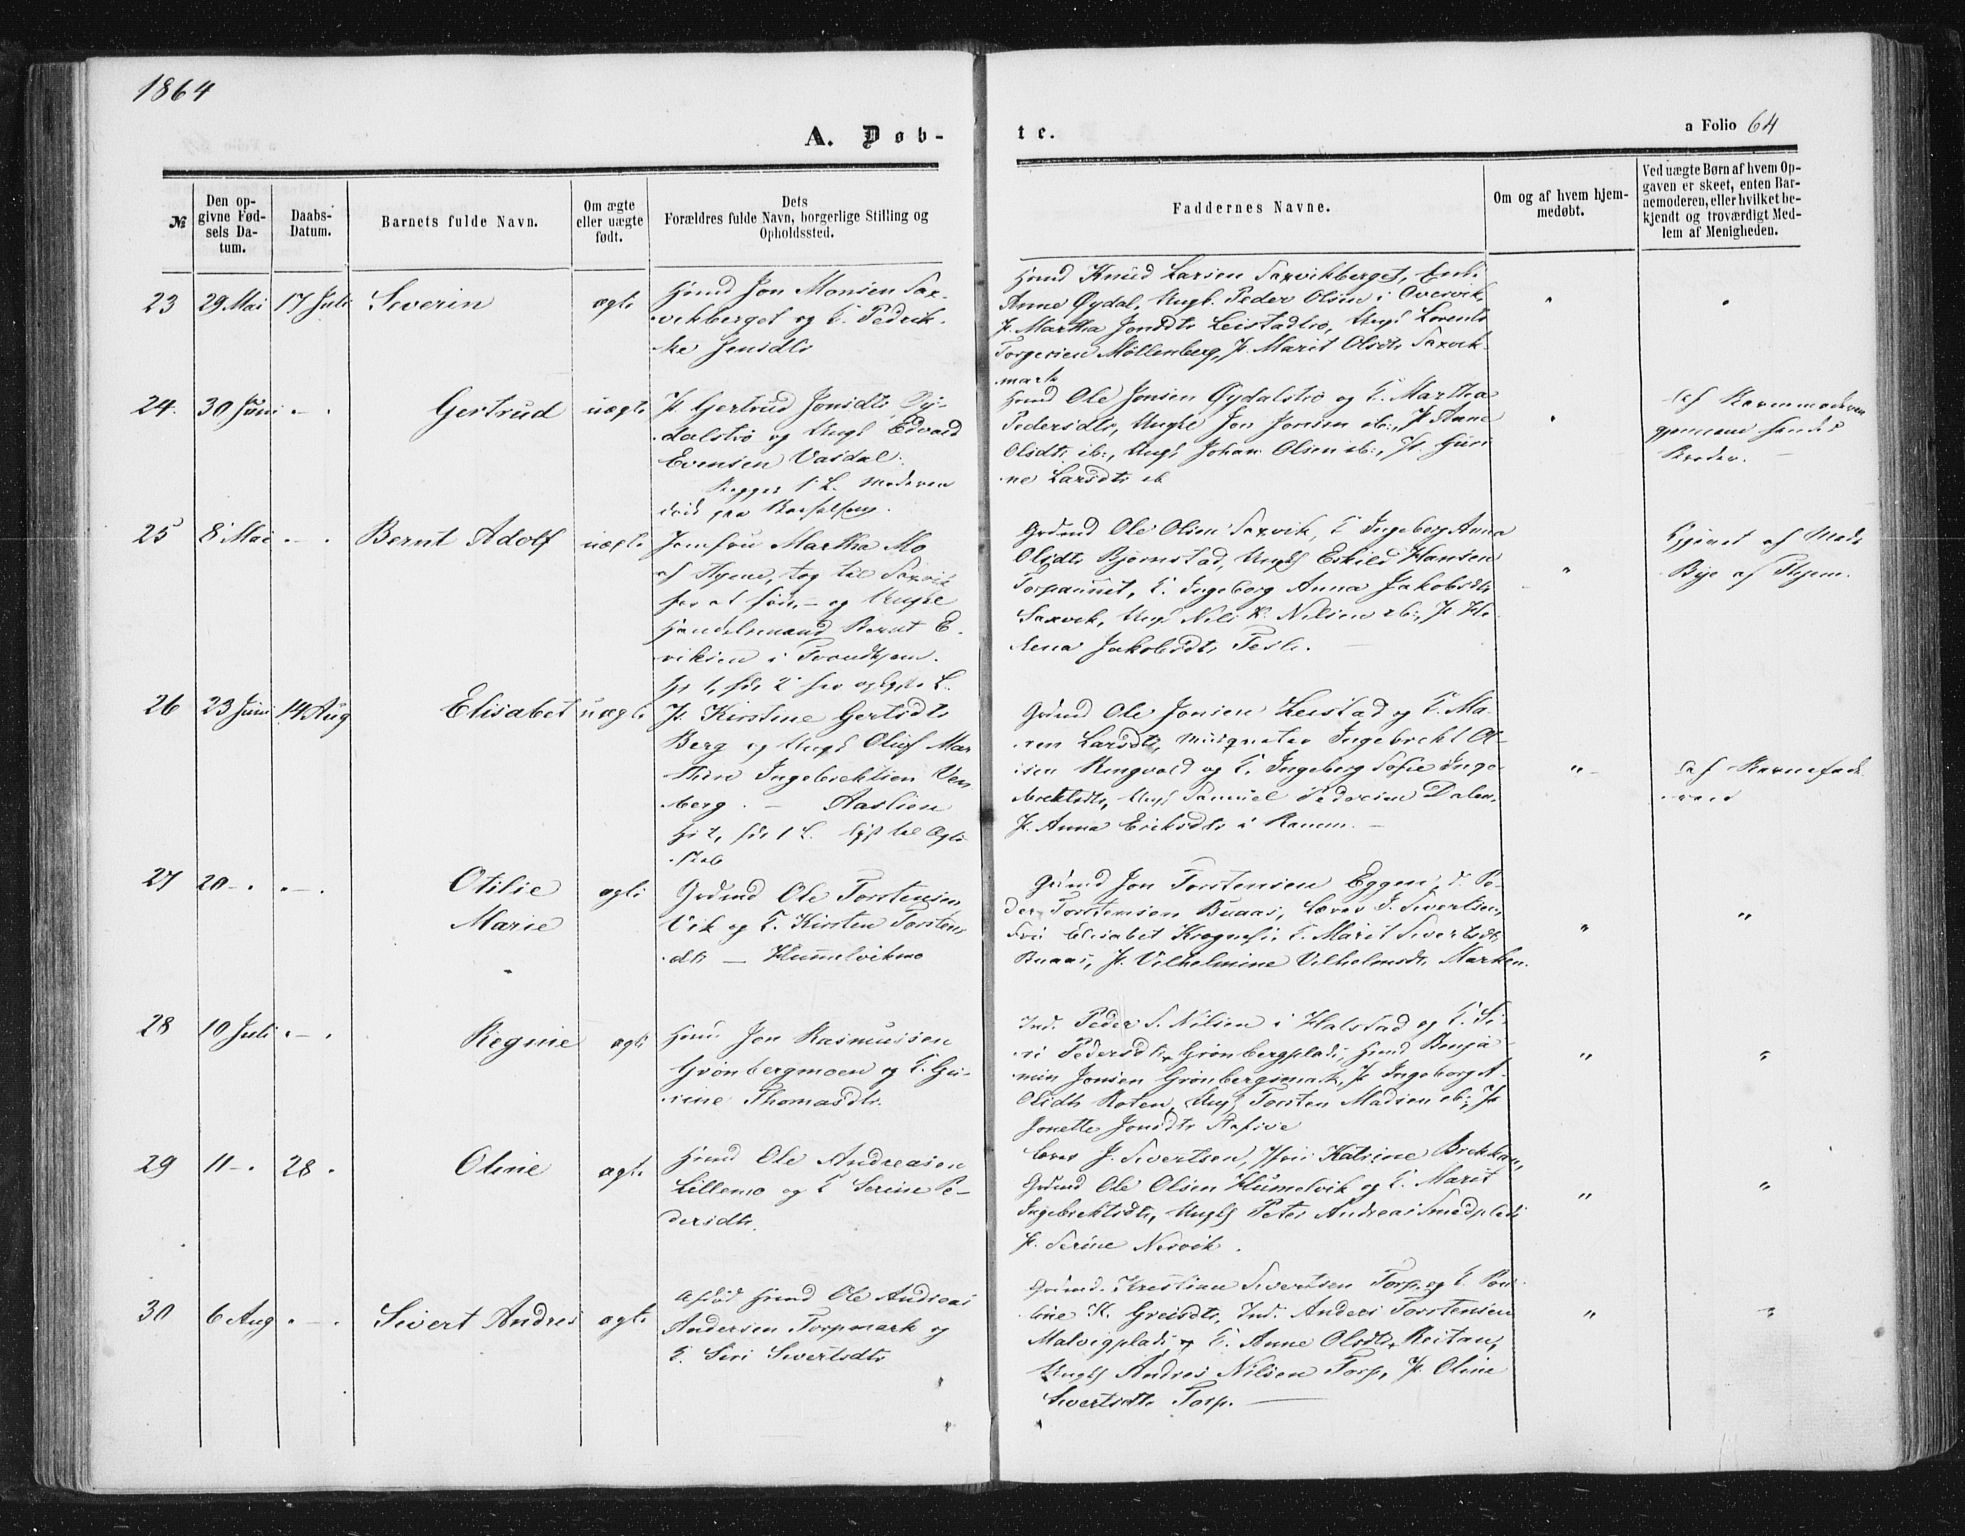 1864
A. Døb-
te.
a Folio 64
№
Den opgivne Fødsels Datum.
Daabs-Datum.
Barnets fulde Navn.
Om ægte eller uægte født.
Dets
Forældres fulde Navn, borgerlige Stilling og
Opholdssted.
Faddernes Navne.
Om og af hvem hjem-
medøbt.
Ved uægte Børn af hvem Op-
gaven er skeet, enten Bar-
nemoderen, eller hvilket be-
kjendt og troværdigt Med-
lem af Menigheden.
23 29 Mai 17 Juli Severin ægte
Hsmd Jon Monsen Sax-
vikberget og
Hsmd Knud Larsen Saxvikberget,
Anne Øydal, Ungk. Peder Olsen i Overvik,
P. Martha Jonsdtr Leistadtrø, Ungk Lorents
Torgersen Møllenberg, P. Marit Olsdtr Saxvik-
mark
24. 30 Juni - - Gertrud uægte
P. Gertrud Jonsdtr Øy-
dalstrø og Ungk Edvard
Evensen Vasdal.
Begges 1 L. Moderen
død paa Barselseng.
Hsmd Ole Jonsen Øydalstrø og K. Martha
Pedersdtr, Ungk Jon Jonsen ib:, P. Anne
Olsdtr ib:, Ungk Johan Olsen ib:, P.
Larsdtr ib
af Barnemoderen
gjennem hendes
Broder.
25 8 Mai - - Bernt Adolf uægte
Jomfru Martha Mo
af Stjørd, tog til Saxvik
for at føde, - og Ungk
Handelsmand Bernt E-
riksen i Trondhjem.
Gdmd Ole Olsen Saxvik, K. Ingeborg Anna
Olsdtr Bjørnstad, Ungk Eskild Hansen
Torpaunet, K. Ingeborg Anna Jakobsdtr
Saxvik, Ungk Nils K. Nilsen ib:, P. He-
lena Jakobsdtr Fesli.
Opgivet af Mads
Bye af Thjem.
26 23 Juni 14 Aug Elisabet uægte
P. Kirstine Gertsdtr
Berg og Ungk Oluf Mar-
thin Ingebrektsen Ven-
berg. - Aaslien
Gdmd Ole Jonsen Leistad og K. Ma-
ren Larsdtr, Ingebrekt Ol-
sen Ringvold og K. Ingeborg Sofie Inge-
brektsdtr, Ungk Samuel Pedersen Dalen,
P. Anna Eriksdtr i Ranum. -
af Barnefade-
ren
27 20 - . - . Otilie
Marie ægte
Gdmd Ole Torstensen
Vik og K. Kirsten Torstens-
dtr - Hummelvikmo
Gdmd Jon Torstensen Eggen, Pe-
der Torstensen Buaas, Lærer J. Sivertsen,
Elisabet Krognes, K. Marit Sivertsdtr
Buaas, P. Vilhelmine Vilhelmsdtr Marken.
28 10 Juli - . Regine ægte
Hsmd Jon Rasmussen
Grønbergmoen og K. Gu-
rine Thomasdtr.
Ind. Peder S. Nilsen i Halstad og K. Si-
ri Pedersdtr Grønbergplads, Hsmd Benja-
min Jonsen Grønbergsmark, P. Ingeborg A.
Olsdtr Roten, Ungk Torsten Madsen ib:, P.
Jonette Jonsdtr
29 11 - . 28 . Oline ægte
Hsmd Ole Andreasen
Lillemo og K. Serine Pe-
dersdtr.
Lærer J. Sivertsen, Katrine Brekkan,
Gdmd Ole Olsen Hummelvik og K. Marit
Ingebrektsdtr, Ungk Peter Andreas Smedplads
P. Serine Nesvik.
30 6 Aug - . Sivert Andres ægte
Afdød Hsmd Ole Andreas
Andersen Torpmark og
K. Siri Sivertsdtr
Gdmd. Kristian Sivertsen Torp og K. Pau-
line K. Ind. Anders Torstensen
Malvigplads og K. Anne Olsdtr Reitan,
Ungk Andres Nilsen Torp, P. Oline
Sivertsdtr Torp.